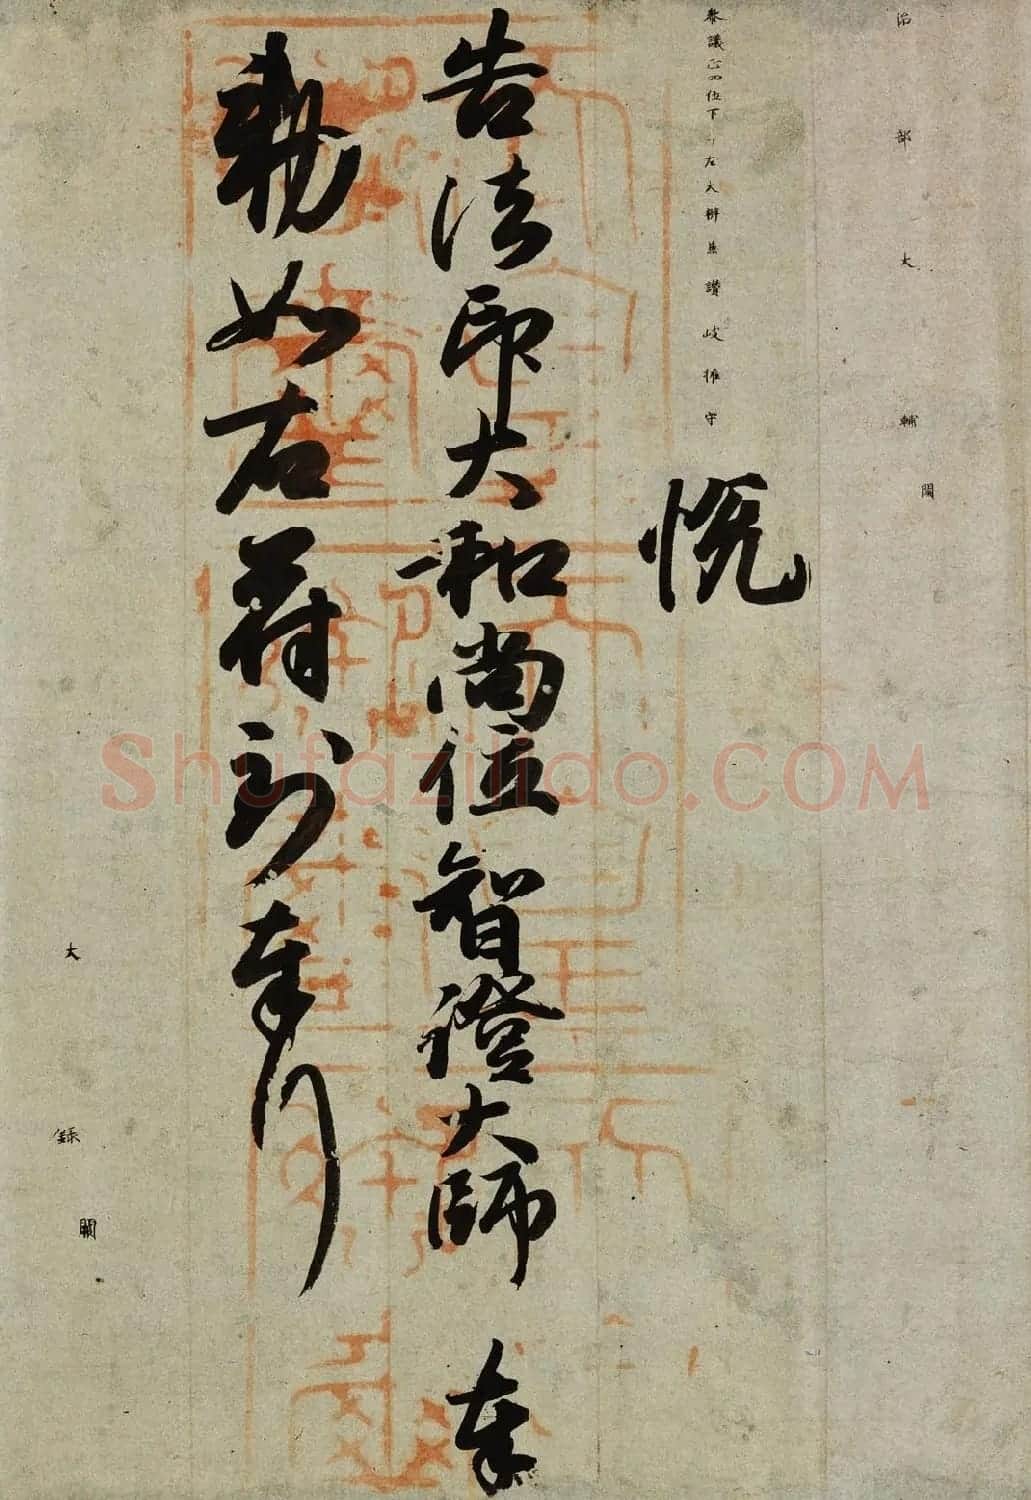 治部大輔闕
參議正四位下行左大辨兼讚岐權守
悦
告法印大和尚位智證大師 奉
勅如右符到奉行
大録闕
Shufazilidao.COM